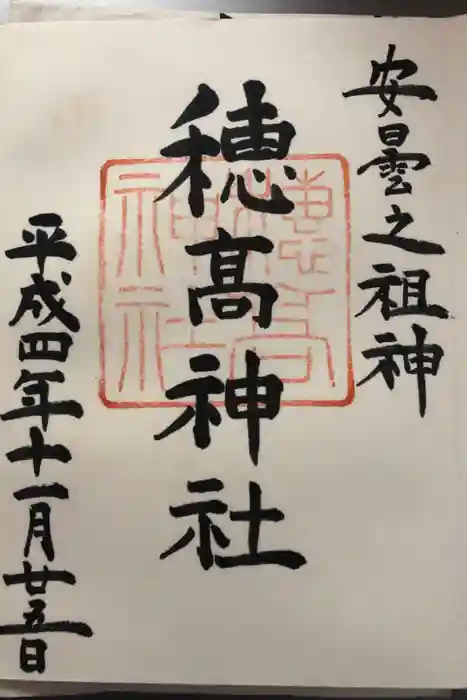 安曇之祖神
穂高神社
穂高神社
平成四年十一月廿五日